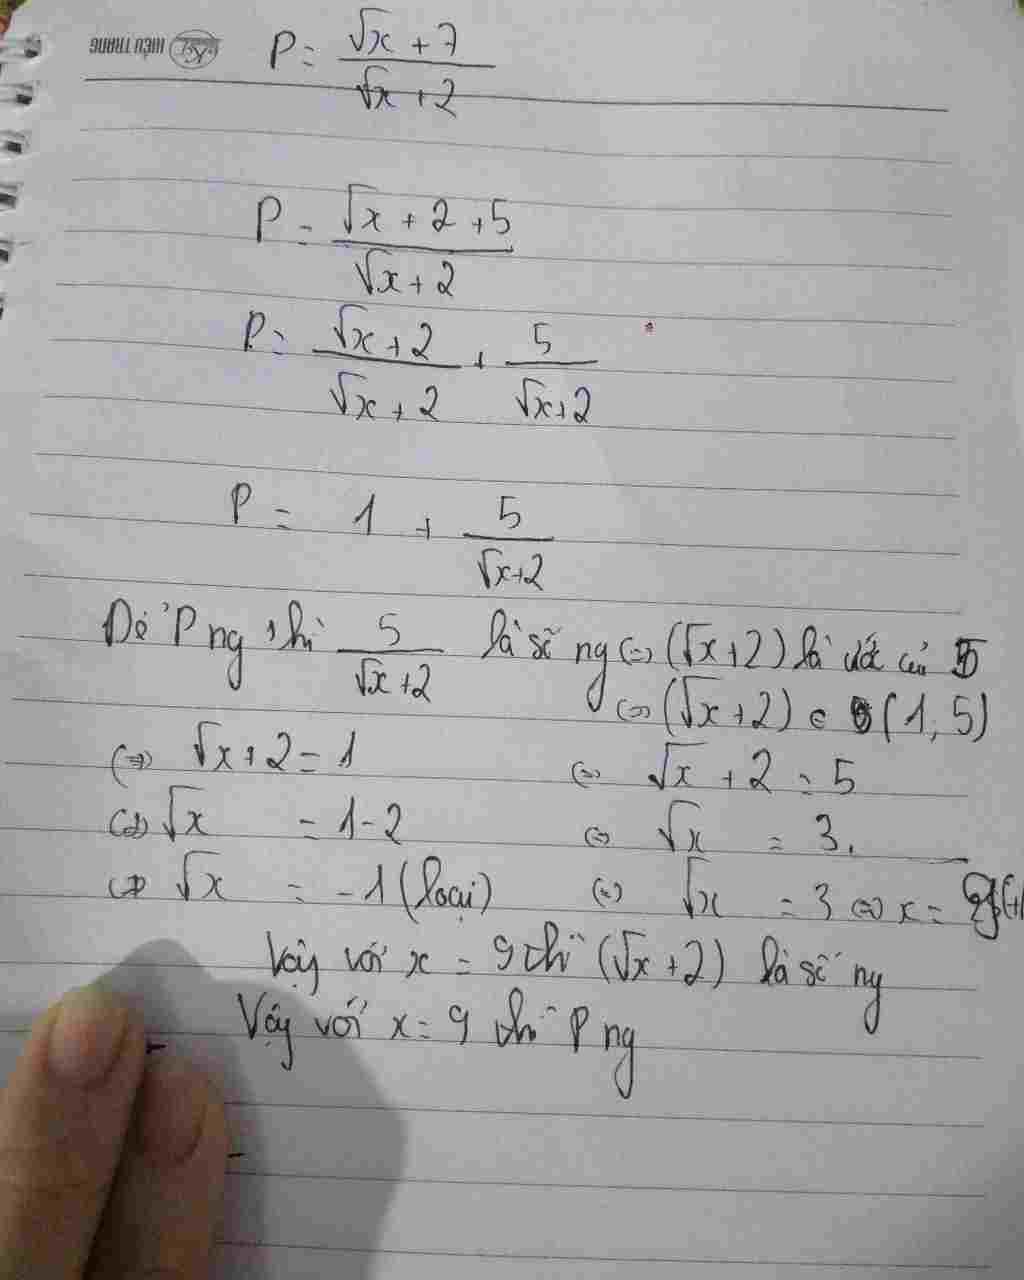 HIẾU TRANG
P = \frac{\sqrt{x} + 7}{\sqrt{x} + 2}
P = \frac{\sqrt{x} + 2 + 5}{\sqrt{x} + 2}
P = \frac{\sqrt{x} + 2}{\sqrt{x} + 2} + \frac{5}{\sqrt{x} + 2}
P = 1 + \frac{5}{\sqrt{x} + 2}
Để P ng thì \frac{5}{\sqrt{x} + 2} là số ng (=) (\sqrt{x} + 2) là ước của 5
(=) (\sqrt{x} + 2) ∈ (1, 5)
(=) \sqrt{x} + 2 = 1 (=) \sqrt{x} + 2 = 5
(=) \sqrt{x} = 1 - 2 (=) \sqrt{x} = 3.
(=) \sqrt{x} = -1 (loại) (=) \sqrt{x} = 3 (=) x =
Vậy với x = 9 thì (\sqrt{x} + 2) là số ng
Vậy với x = 9 thì P ng